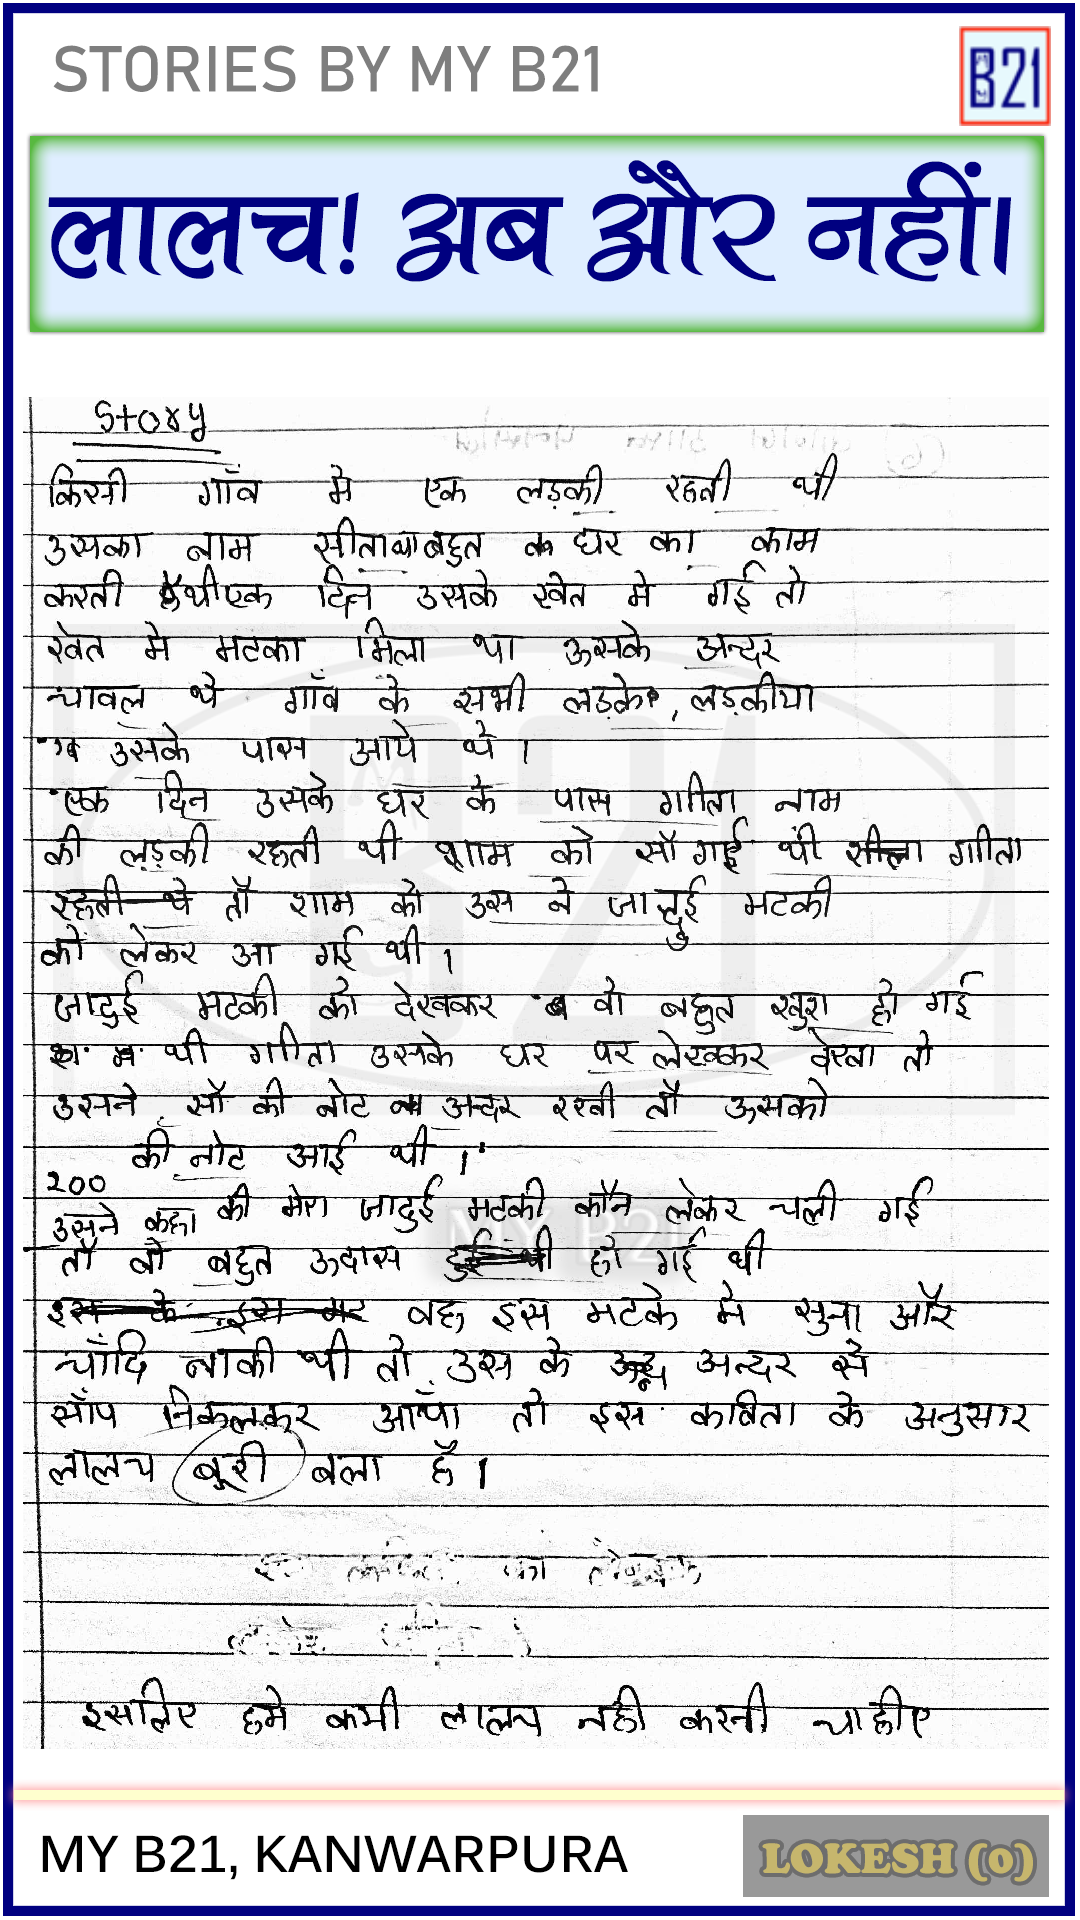 STORIES BY MY B21
B21
लालच! अब और नहीं।
Story
किसी गाँव मे एक लड़की रहती थी
उसका नाम सीता था बहुत घर का काम
करती थी एक दिन उसके खेत मे गई तो
खेत मे मटका मिला था ऊसके अन्दर
चावल थे गाँव के सभी लड़के, लड़कीया
उसके पास आये थे।
एक दिन उसके घर के पास गीता नाम
की लड़की रहती थी शाम को सौ गई थी गीता
तौ शाम को उस ने जादुई मटकी
को लेकर आ गई थी।
जादुई मटकी को देखकर वो बहुत खुश हो गई
थी गीता उसके घर पर लेखकर देखा तो
उसने सौ की नोट अन्दर रखी तौ ऊसको
200 की नोट आई थी।
उसने कहा की मेरा जादुई मटकी कौन लेकर चली गई
तौ वो बहुत ऊदास हो गई थी
वह इस मटके मे सुना और
चाँदि नाकी थी तो उस के अन्दर से
साँप निकलकर आँया तो इस कविता के अनुसार
लालच बूरी बला है।
इसलिए हमे कभी लालच नही करनी चाहीए
MY B21
MY B21, KANWARPURA
LOKESH (0)